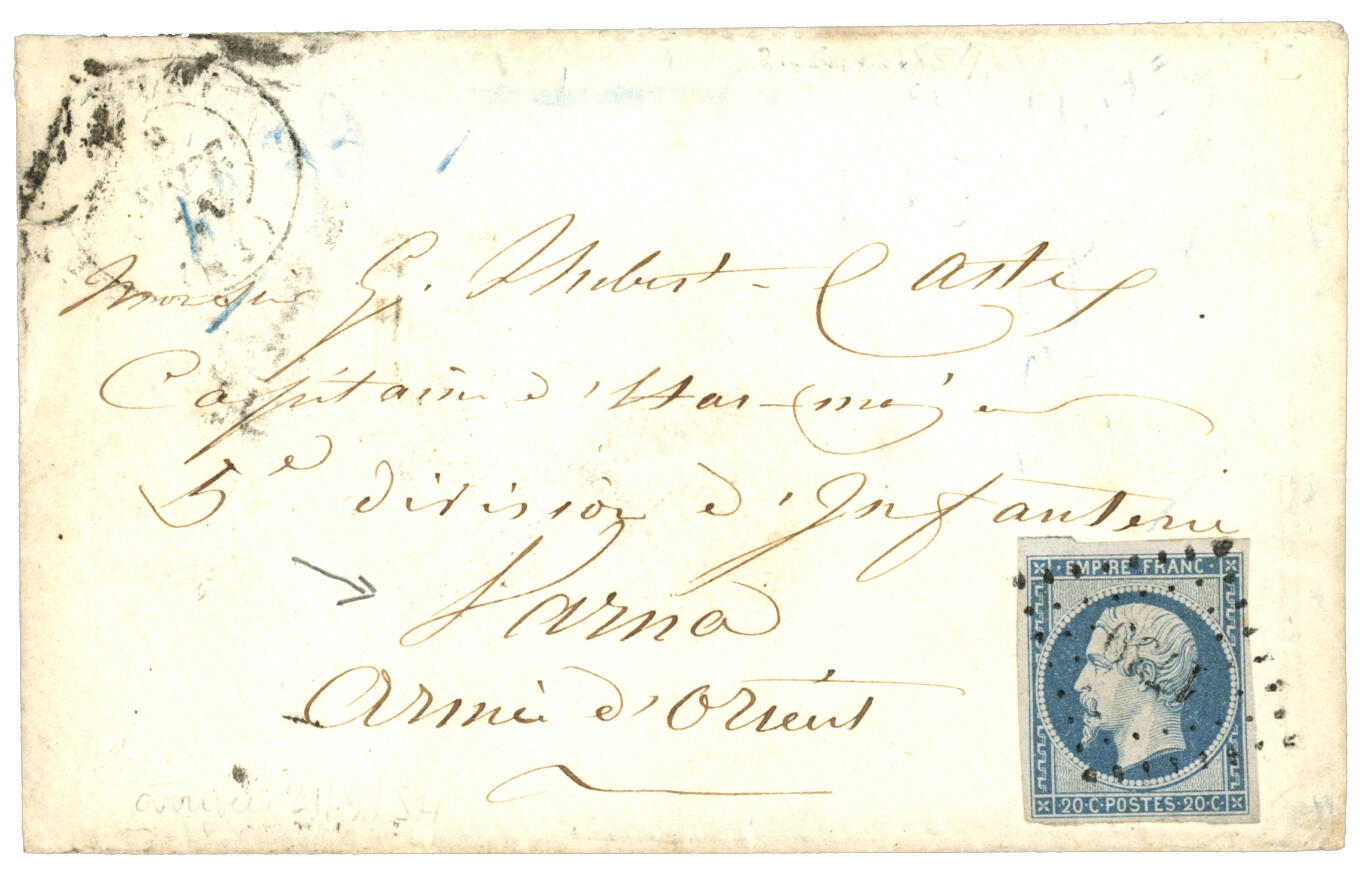 Monsieur G. Thibert-Caste
Capitaine d'Etat-major
5e division d'Infanterie
Varna
Armée d'Orient
EMPIRE FRANC
20·C·POSTES·20·C